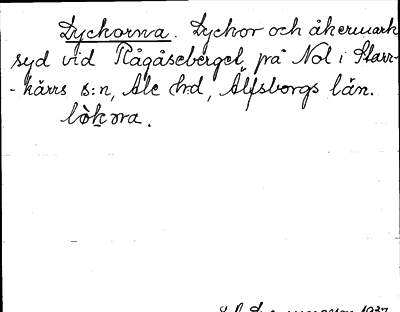 Lyckorna. Lyckor och åkermark
syd vid Rågåseberget, på Nol i Starr-
-kärrs s:n, Ale h:d, Älfsborgs län.
1937